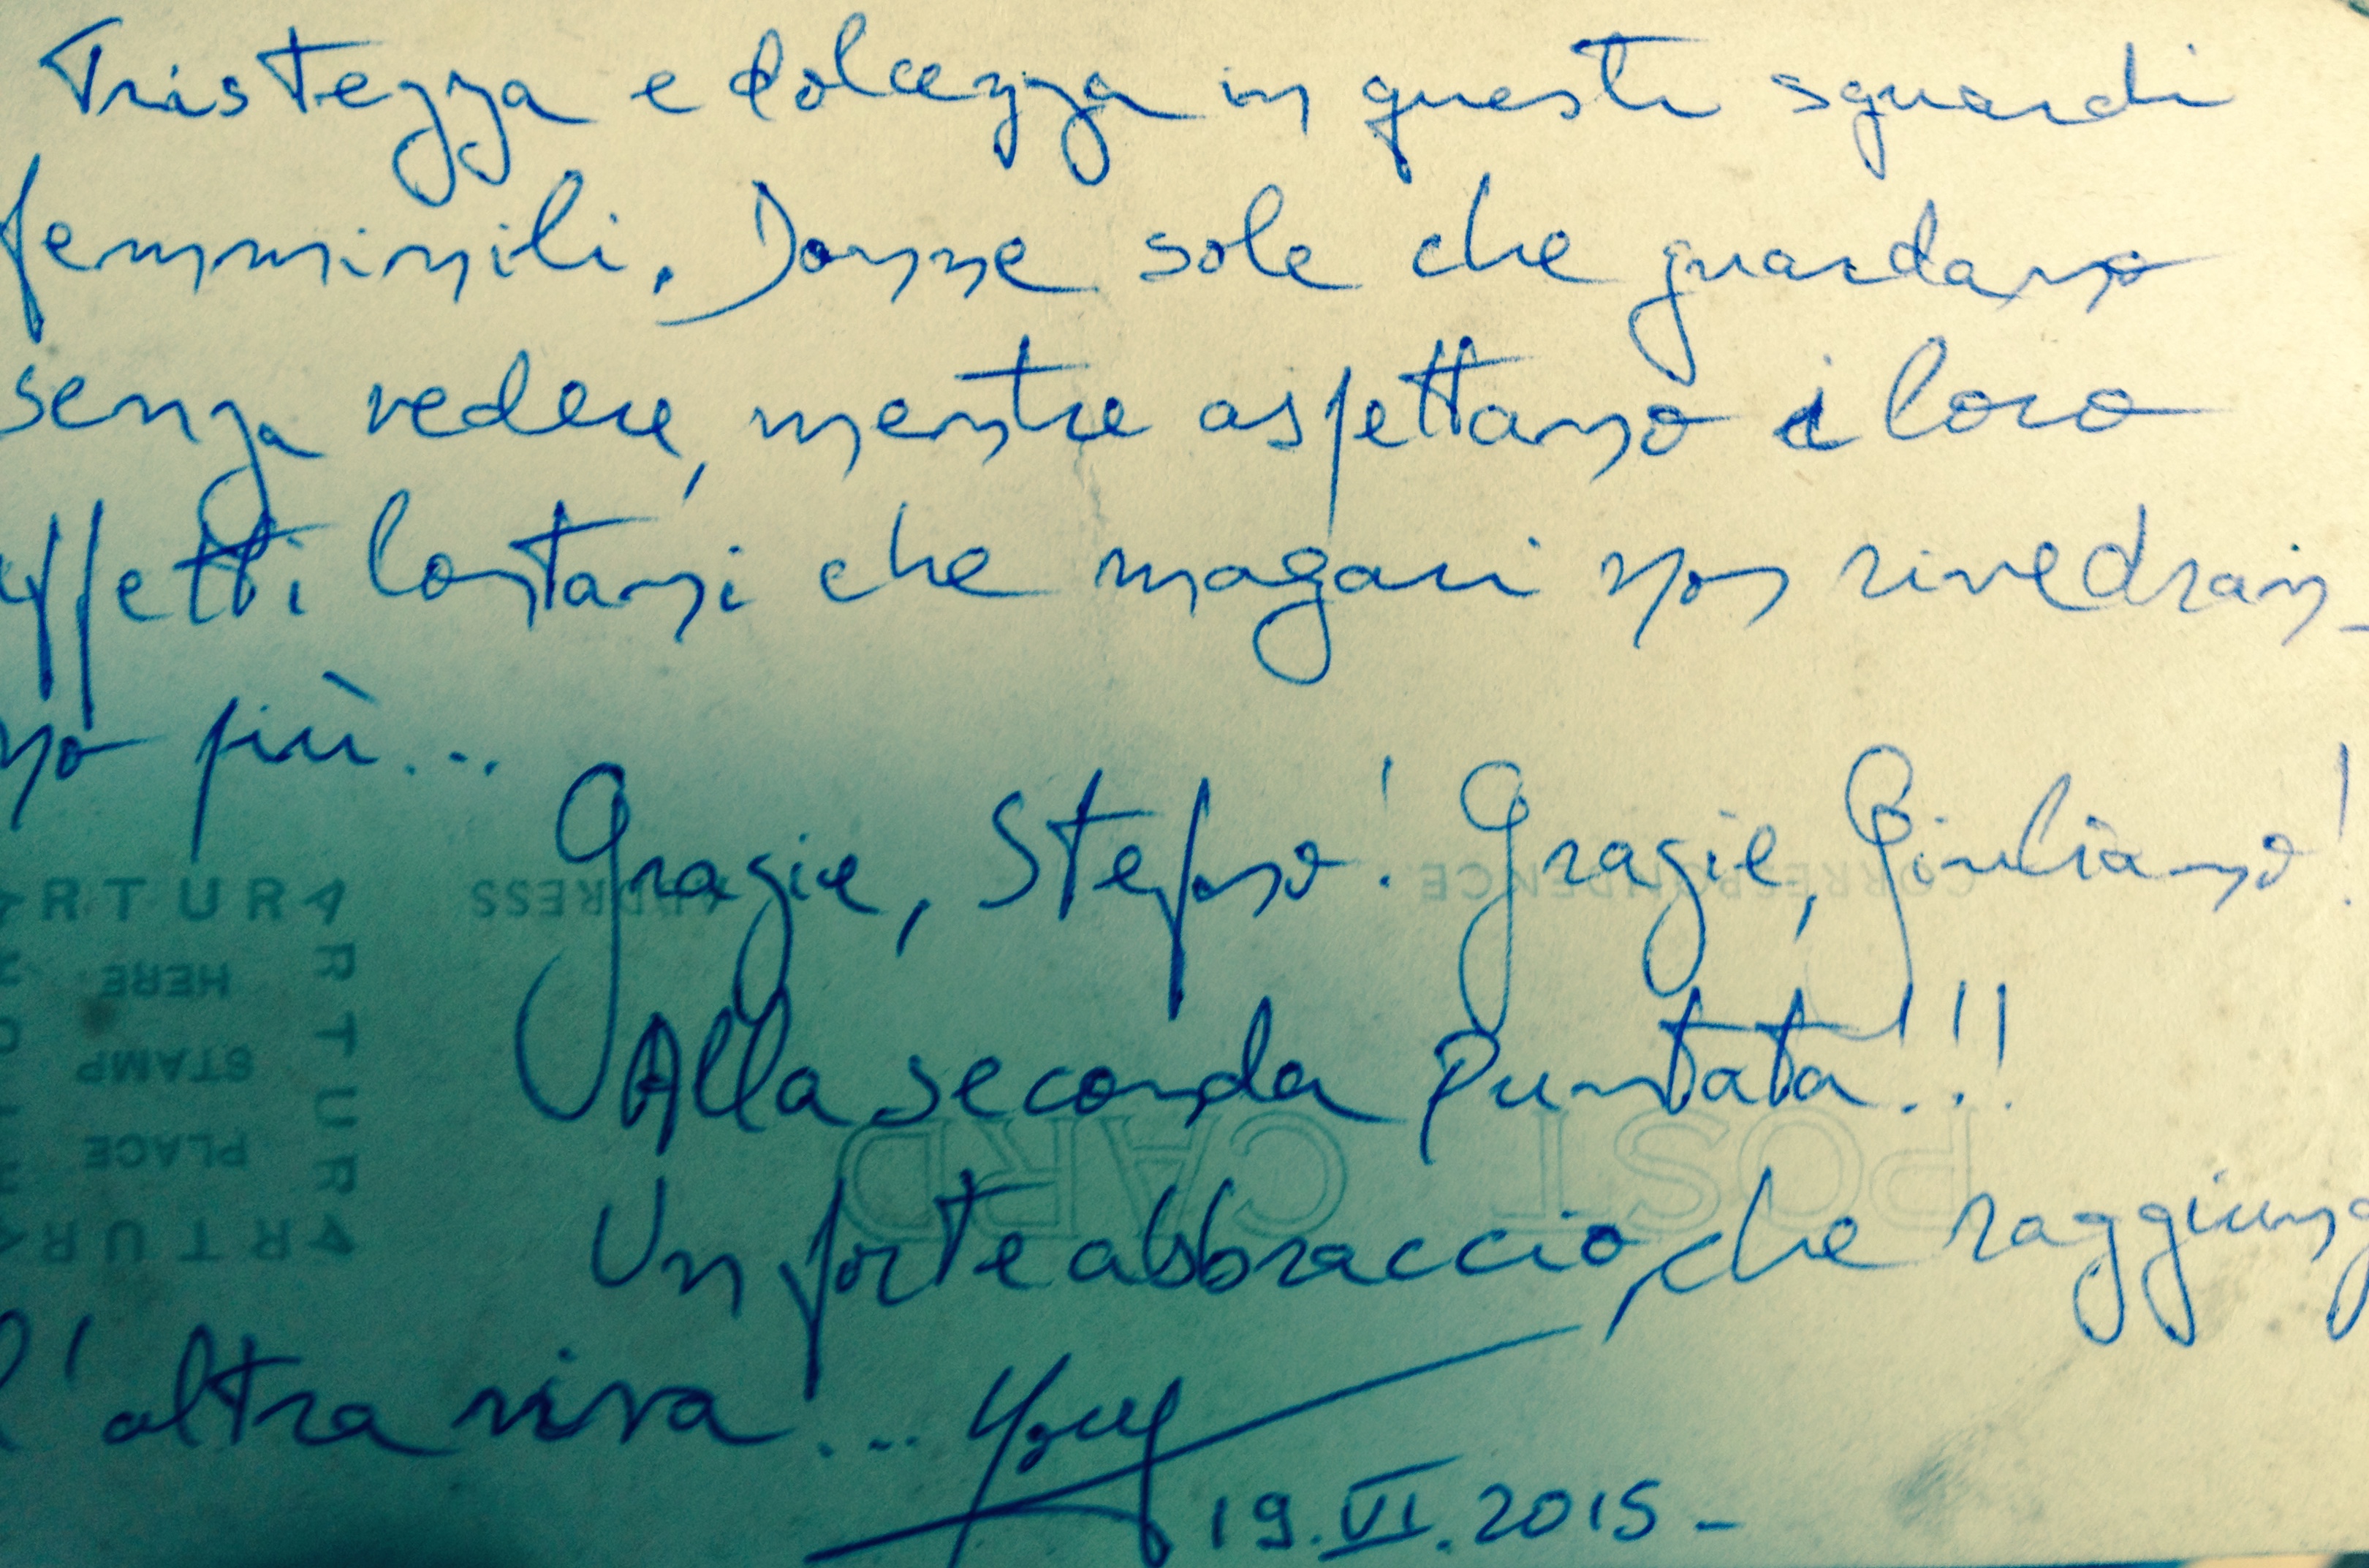 Tristezza e dolcezza in questi sguardi
femminili. Donne sole che guardano
senza vedere, mentre aspettano i loro
affetti lontani che magari non rivedran-
no più...
Grazie, Stefano! Grazie, Giuliano!
Alla seconda Puntata!!!
Un forte abbraccio, che raggiung
l'altra riva...
19.VI.2015-
POST CARD
CORRESPONDENCE
ADDRESS
ARTURA
PLACE
STAMP
HERE
ARTURA